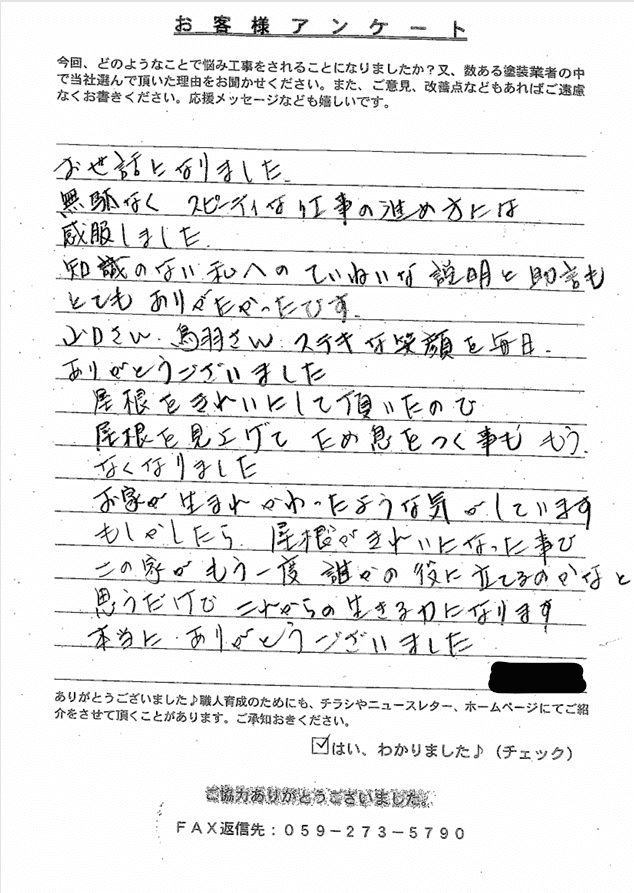 お客様アンケート
今回、どのようなことで悩み工事をされることになりましたか？又、数ある塗装業者の中
で当社選んで頂いた理由をお聞かせください。また、ご意見、改善点などもあればご遠慮
なくお書きください。応援メッセージなども嬉しいです。
お世話になりました.
無駄なく スピーディな工事の進め方には
感服しました.
知識のない私へのていねいな説明と助言も
とてもありがたかったです.
山口さん・鳥羽さん・ステキな笑顔を毎日.
ありがとうございました
屋根をきれいにして頂いたので
屋根を見上げて ため息をつく事も もう.
なくなりました
お家が生まれかわったような気がしています
もしかしたら. 屋根がきれいになった事で
この家がもう一度 誰かの役に立てるのかなと
思うだけで これからの生きる力になります
本当に・ありがとうございました
ありがとうございました♪職人育成のためにも、チラシやニュースレター、ホームページにてご紹
介をさせて頂くことがあります。ご承知おきください。
☑はい、わかりました♪（チェック）
ご協力ありがとうございました。
ＦＡＸ返信先：０５９－２７３－５７９０